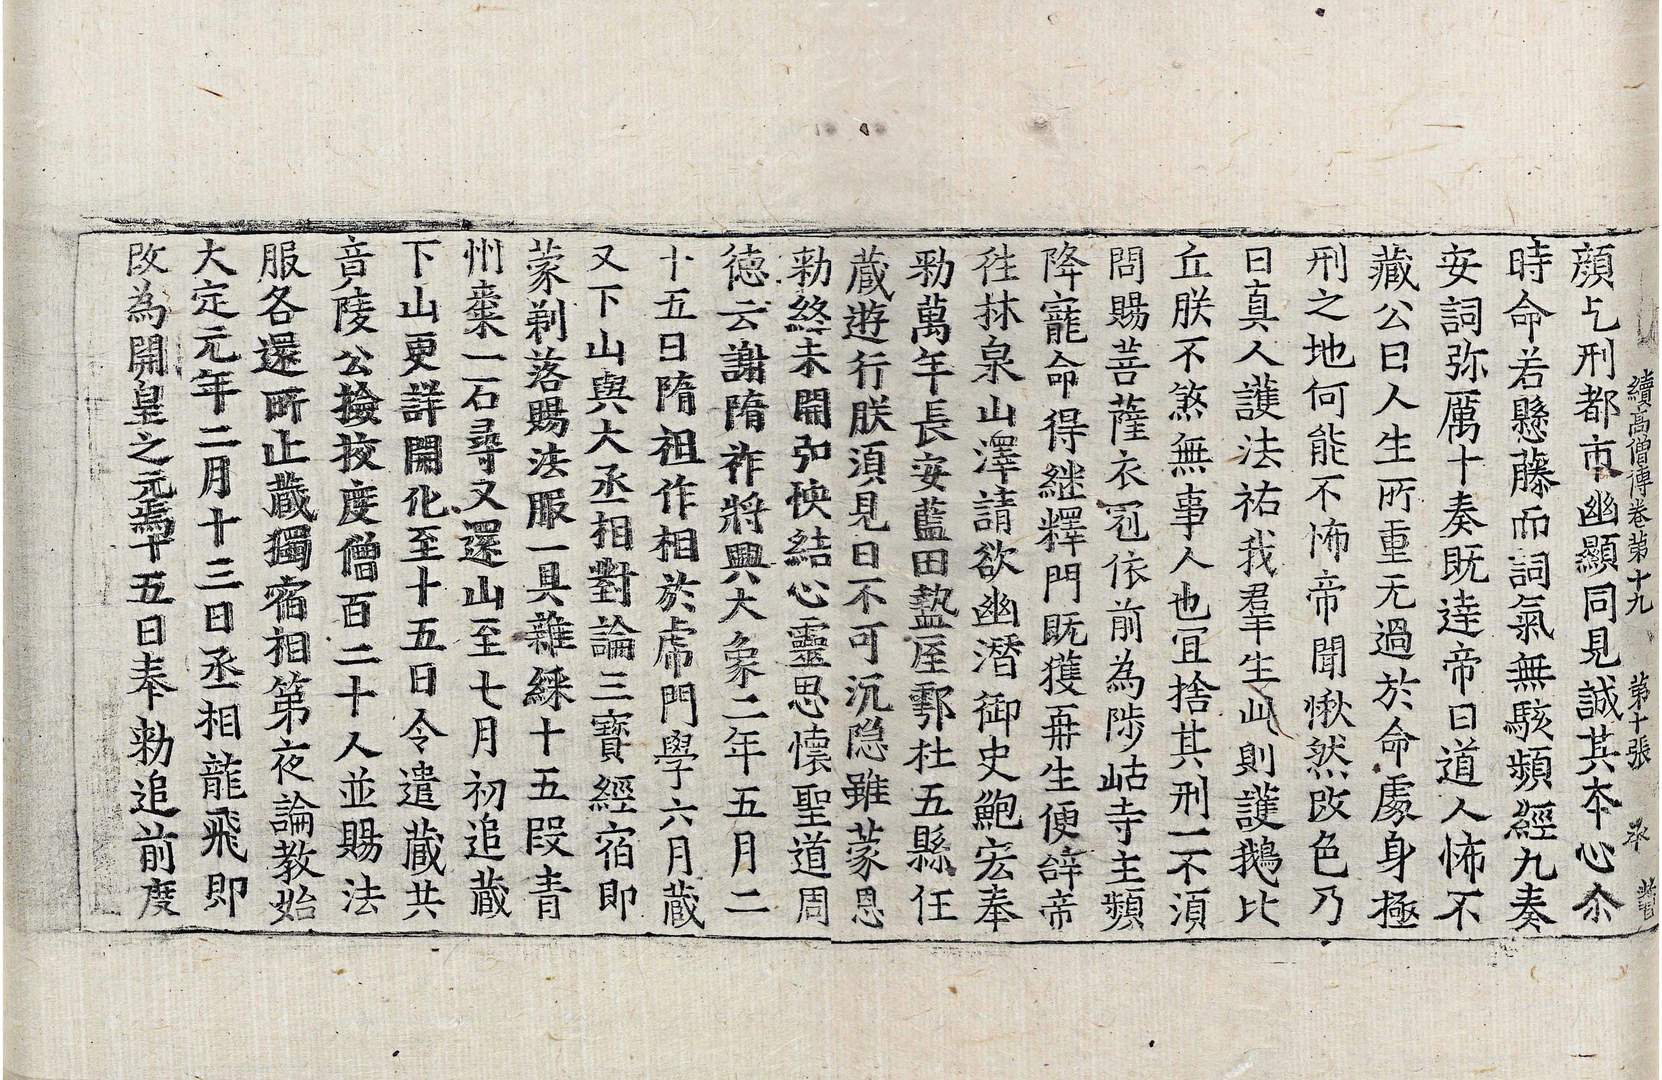 續高僧傳卷第十九　第十張　承
顔乞刑都市幽顯同見誠其本心尒
時命若懸藤而詞氣無駭頻經九奏
安詞弥厲十奏既達帝曰道人怖不
藏公曰人生所重无過於命處身極
刑之地何能不怖帝聞愀然改色乃
曰真人護法祐我羣生此則護鵝比
丘朕不煞無事人也宜捨其刑一不湏
問賜菩薩衣冠依前為陟岵寺主頻
降寵命得継釋門既獲再生便辝帝
徃林泉山澤請欲幽潛御史鮑宏奉
勑萬年長安藍田盩厔鄠杜五縣任
蔵遊行朕湏見日不可沉隐雖蒙恩
勑終未開弘快結心靈思懷聖道周
德云謝隋祚將興大象二年五月二
十五日隋祖作相於虎門學六月蔵
又下山與大丞相對論三寶經宿即
蒙剃落賜法服一具雜綵十五段青
州棗一石尋又還山至七月初追蔵
下山更詳開化至十五日令遣蔵共
竟陵公撿挍度僧百二十人並賜法
服各還所止蔵獨宿相第夜論教始
大定元年二月十三日丞相龍飛即
改為開皇之元焉十五日奉勑追前度